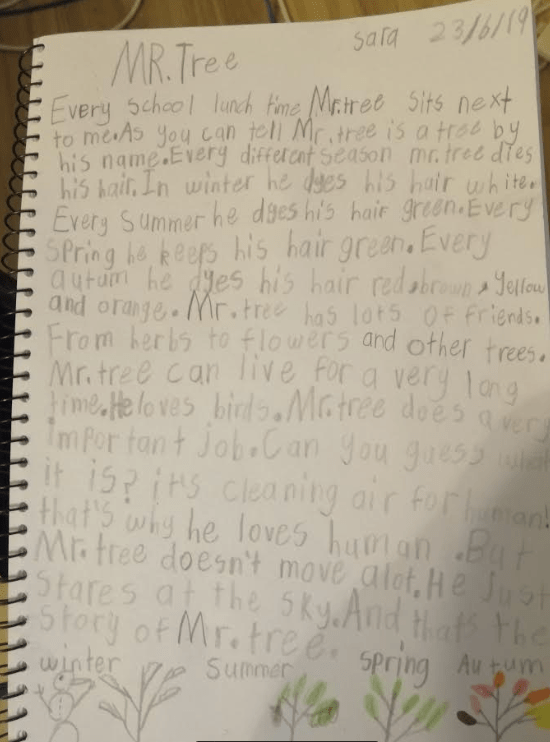 sara 23/6/19
MR.Tree
Every school lunch time Mr.tree sits next
to me.As you can tell Mr.tree is a tree by
his name.Every different season mr.tree dies
his hair.In winter he dyes his hair white.
Every Summer he dyes his hair green.Every
Spring he keeps his hair green.Every
autum he dyes his hair red,brown, Yellow
and orange.Mr.tree has lots of friends.
From herbs to flowers and other trees.
Mr.tree can live for a very long
time.He loves birds.Mr.tree does a very
important job.Can you guess what
it is? it's cleaning air for human!
that's why he loves human .But
Mr.tree doesn't move alot.He Just
Stares at the sky.And that's the
Story of Mr.tree.
winter Summer Spring Autum